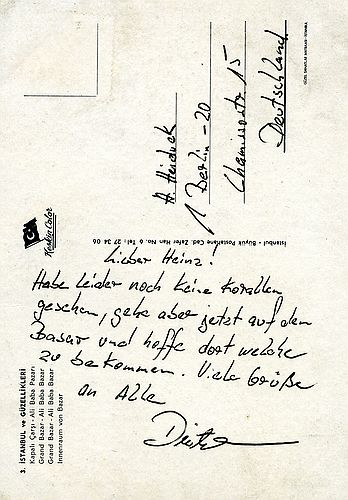 Lieber Heinz!
Habe leider noch keine Korallen
gesehen, gehe aber jetzt auf den
Basar und hoffe dort welche
zu bekommen. Viele Grüße
an Alle
Dieter
H. Heiduck
1 Berlin - 20
Chamissostr 15
Deutschland
Keskin Color
Istanbul - Büyük Postahane Cad. Zafer Han No. 6 Tel: 27 34 06
3. İSTANBUL ve GÜZELLİKLERİ
Kapalı Çarşı - Ali Baba Pazarı
Grand Bazar - Ali Baba Bazar
Grand Bazar - Ali Baba Bazar
Innenraum von Bazar